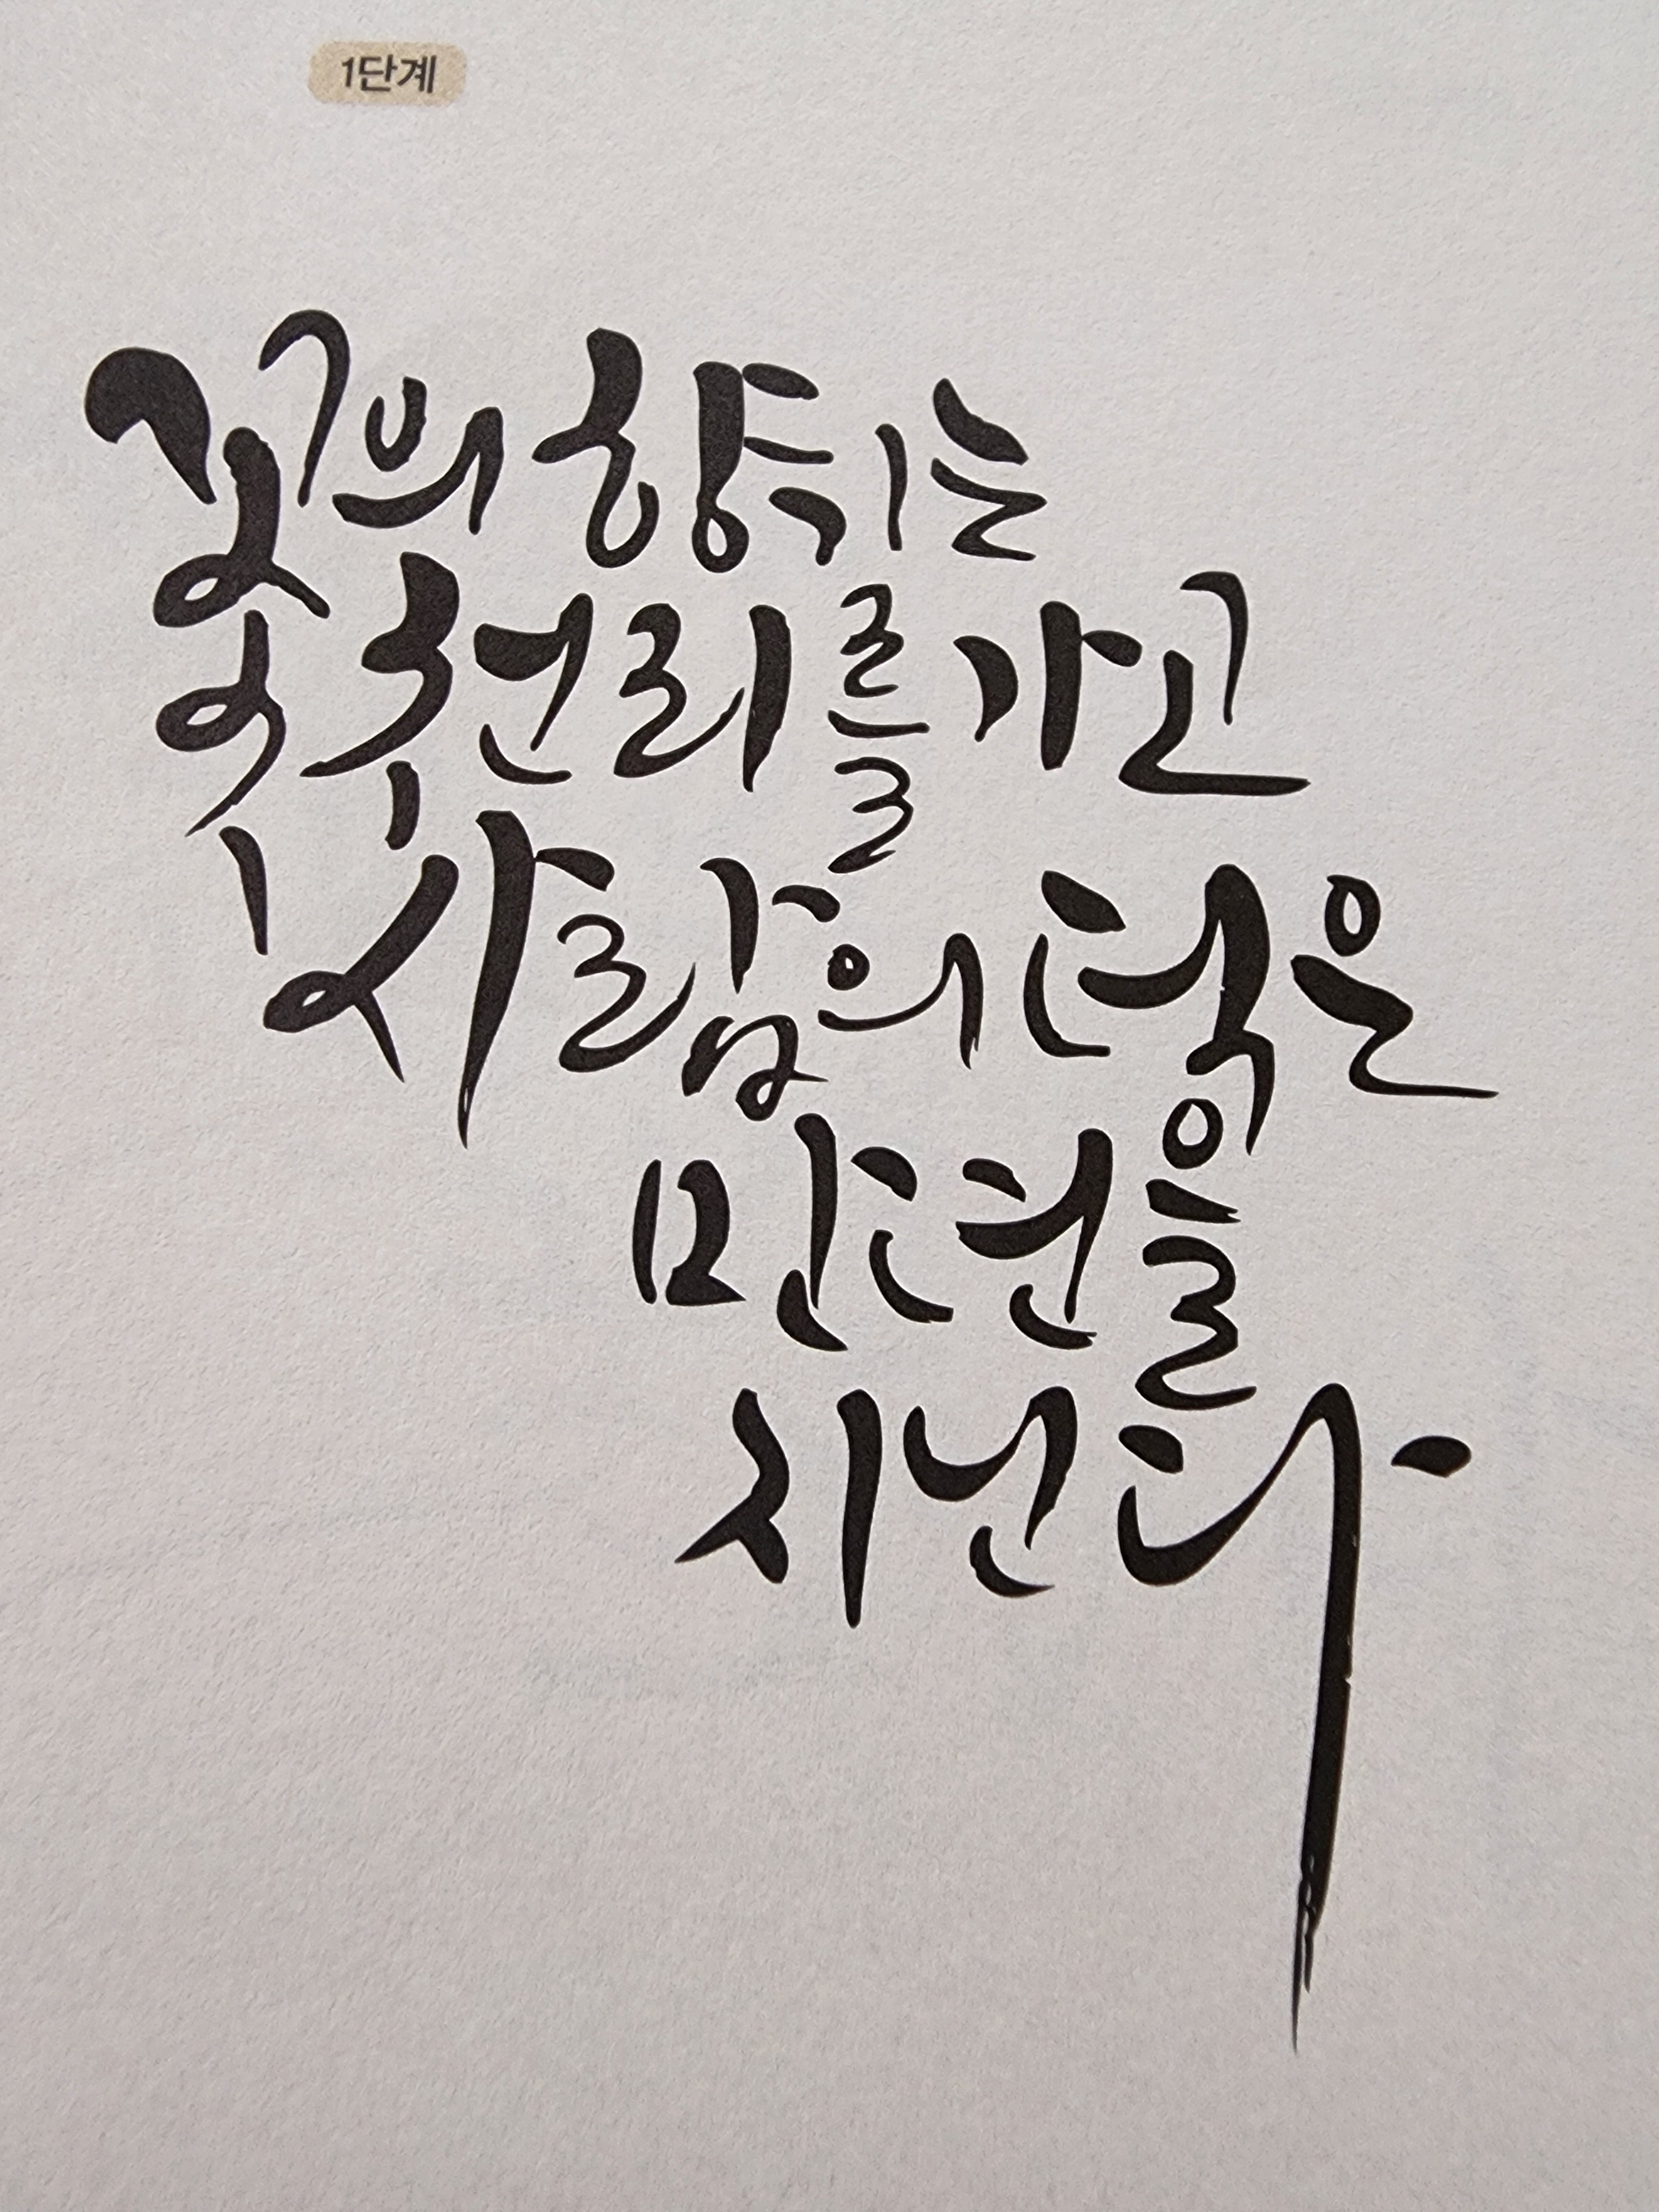 1단계
꽃의 향기는
천리를 가고
사람의 덕은
만년을
지닌다